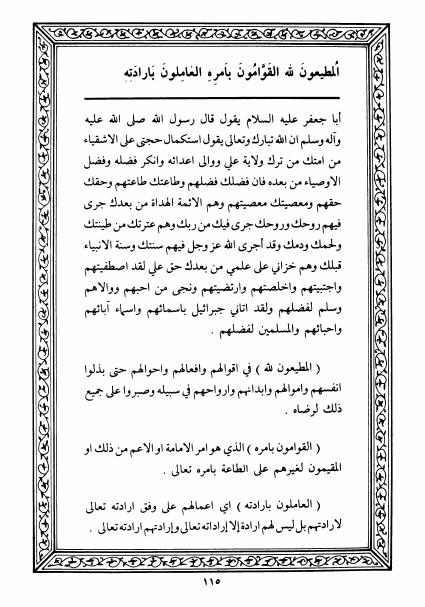 المطيعونَ لله القَوَّامُونَ بِأمرِهِ العَامِلونَ بَارادَتِهِ
أبا جعفر عليه السلام يقول قال رسول الله صلى الله عليه
وآله وسلم ان الله تبارك وتعالى يقول استكمال حجتى على الاشقياء
من امتك من ترك ولاية علي ووالى اعدائه وانكر فضله وفضل
الاوصياء من بعده فان فضلك فضلهم وطاعتك طاعتهم وحقك
حقهم ومعصيتك معصيتهم وهم الائمة الهداة من بعدك جرى
فيهم روحك وروحك جرى فيك من ربك وهم عترتك من طينتك
ولحمك ودمك وقد أجرى الله عز وجل فيهم سنتك وسنة الانبياء
قبلك وهم خزاني على علمي من بعدك حق علي لقد اصطفيتهم
واجتبيتهم واخلصتهم وارتضيتهم ونجى من احبهم ووالاهم
وسلم لفضلهم ولقد اتاني جبرائيل باسمائهم واسماء آبائهم
واحبائهم والمسلمين لفضلهم .
( المطيعون لله ) في اقوالهم وافعالهم واحوالهم حتى بذلوا
انفسهم واموالهم وابدانهم وارواحهم في سبيله وصبروا على جميع
ذلك لرضاه .
( القوامون بامره ) الذي هو امر الامامة او الاعم من ذلك او
المقيمون لغيرهم على الطاعة بامره تعالى .
( العاملون بارادته ) اي اعمالهم على وفق ارادته تعالى
لارادتهم بل ليس لهم ارادة إلا إراداته تعالى وإرادتهم ارادته تعالى .
١١٥